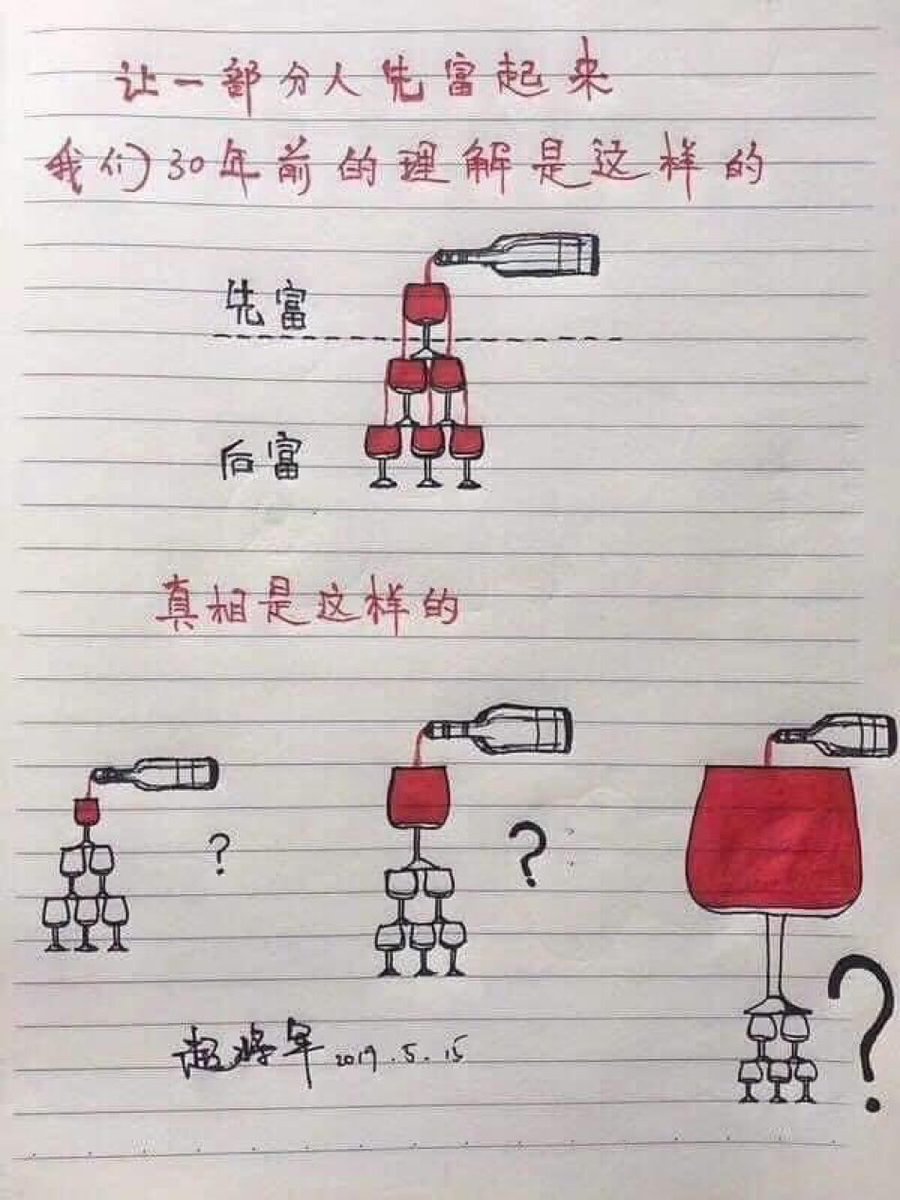 让一部分人先富起来
我们30年前的理解是这样的
先富
后富
真相是这样的
?
?
?
2019.5.15